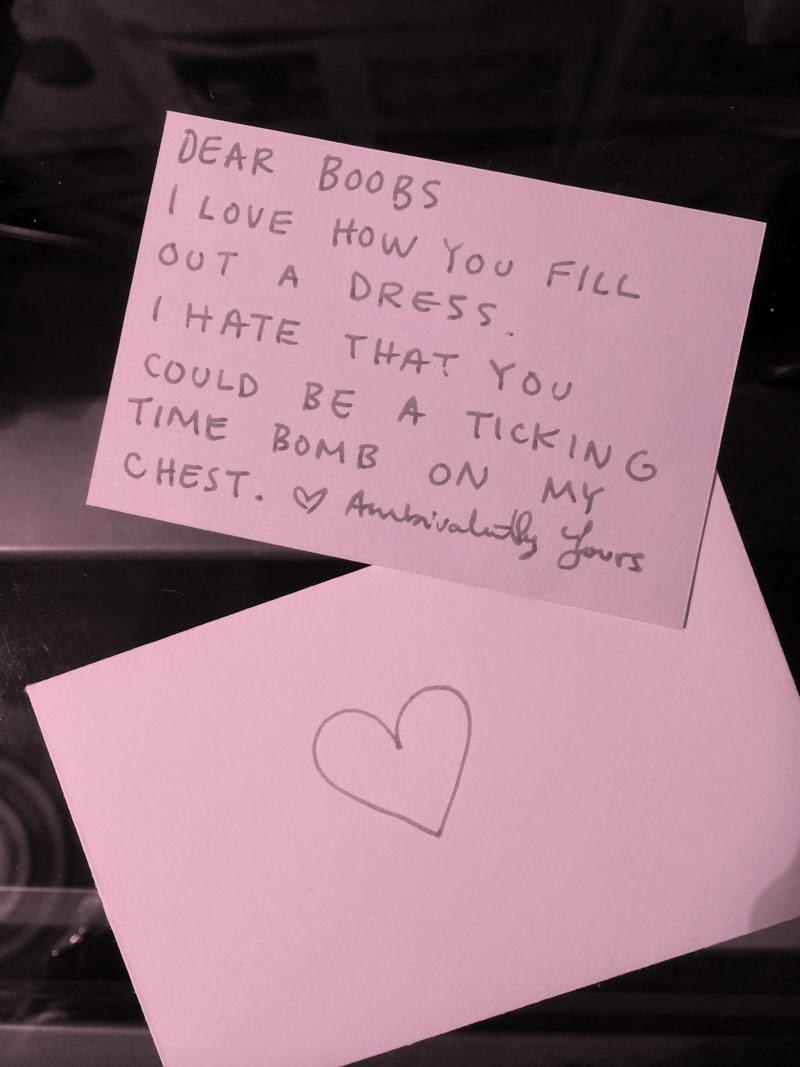 DEAR BOOBS
I LOVE HOW YOU FILL
OUT A DRESS.
I HATE THAT YOU
COULD BE A TICKING
TIME BOMB ON MY
CHEST. ♡ Ambivalently Yours